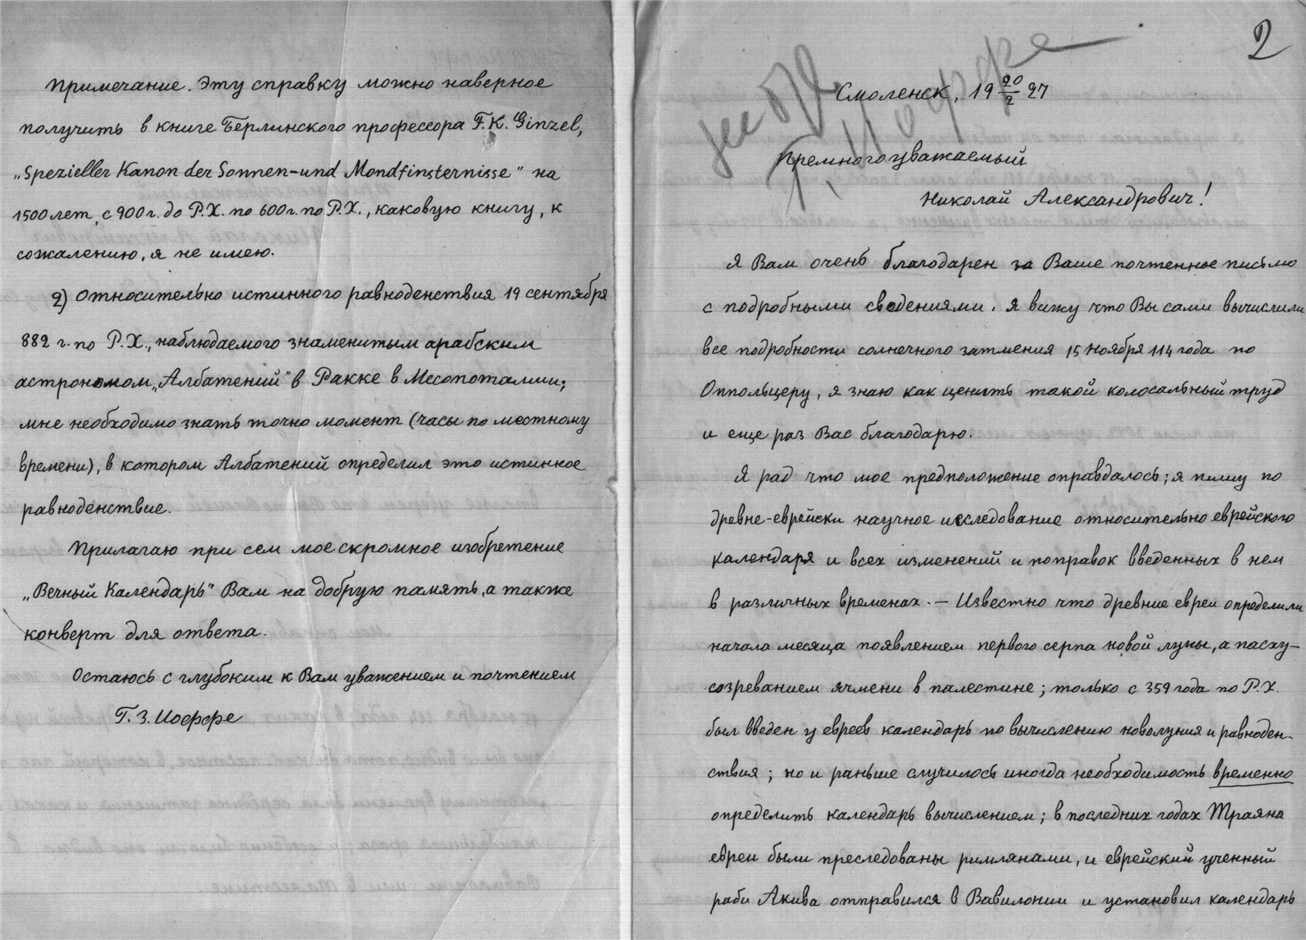 Примечание. Эту справку можно наверное
получить в книге Берлинского профессора F. K. Ginzel,
„Spezieller Kanon der Sonnen-und Mondfinsternisse“ на
1500 лет, с 900 г. до Р.Х. по 600 г. по Р.Х., каковую книгу, к
сожалению, я не имею.
2) Относительно истинного равноденствия 19 сентября
882 г. по Р.Х., наблюдаемого знаменитым арабским
астрономом „Албатений“ в Ракке в Месопотамии;
мне необходимо знать точно момент (часы по местному
времени), в котором Албатений определил это истинное
равноденствие.
Прилагаю при сем мое скромное изобретение
„Вечный Календарь“ Вам на добрую память, а также
конверт для ответа.
Остаюсь с глубоким к Вам уважением и почтением
Г. З. Иоффе
2
Иоффе
Смоленск, 19 20/2 27
Премногоуважаемый
Николай Александрович!
Я Вам очень благодарен за Ваше почтенное письмо
с подробными сведениями. Я вижу что Вы сами вычислили
все подробности солнечного затмения 15 ноября 114 года по
Оппольцеру, я знаю как ценить такой колосальный труд
и еще раз Вас благодарю.
Я рад что мое предположение оправдалось; я пишу по
древне-еврейски научное исследование относительно еврейского
календаря и всех изменений и поправок введенных в нем
в различных временах. — Известно что древние евреи определили
начала месяца появлением первого серпа новой луны, а пасху —
созреванием ячмени в палестине; только с 359 года по Р.Х.
был введен у евреев календарь по вычислению новолуния и равноден-
ствия; но и раньше случилось иногда необходимость временно
определить календарь вычислением; в последних годах Траяна
евреи были преследованы римлянами, и еврейский ученный
раби Акива отправился в Вавилонии и установил календарь